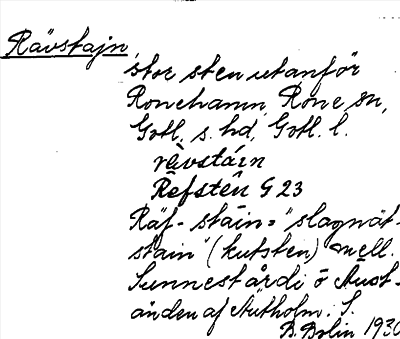 Rävstajn
stor sten utanför
Ronehamn, Rone sn,
Gotl. s. hd, Gotl. l.
rävstáin
Refstên G 23
Räf-stäin = "slagnät-
stain" (kutsten) mell.
Sunnestårdi ö Aust-
änden af Autholm. S.
B. Bolin 1930